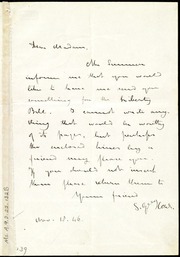 Dear Madam,
Mr Sumner
informs me that you would
like to have me send you
something for the Liberty
Bell. I cannot write any
thing that would be worthy
of its pages, but perhaps
the enclosed lines by a
friend may please you.
If you should not need
them please return them to
Yours friend
S. G. Howe.
Nov. 12. 46